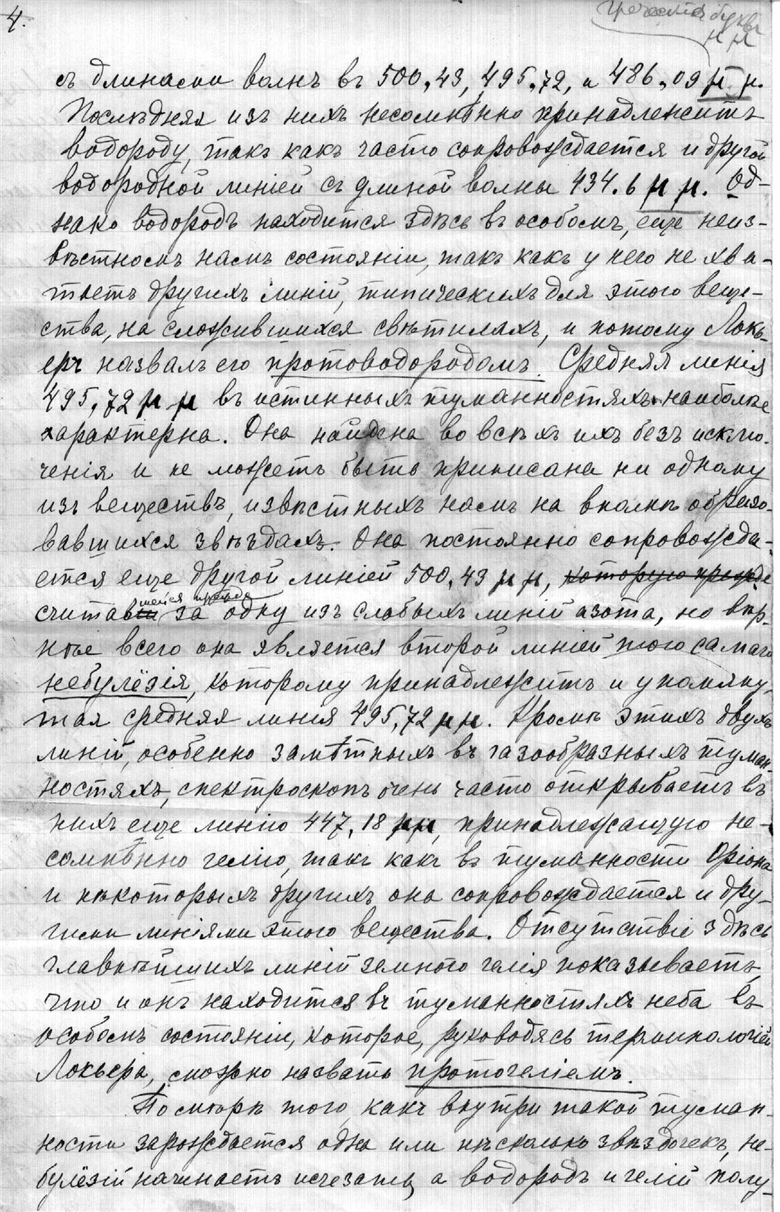 4.
греческія буквы
μ μ
съ длинами волнъ въ 500,43, 495,72, и 486,09 μ μ.
Послѣдняя изъ нихъ несомнѣнно принадлежитъ
водороду, такъ какъ часто сопровождается и другой
водородной линіей съ длиной волны 434.6 μ μ. Од-
нако водородъ находится здѣсь въ особомъ, еще неиз-
вѣстномъ намъ состояніи, такъ какъ у него не хва-
таетъ другихъ линій, типическихъ для этого веще-
ства, на сложившихся свѣтилахъ, и потому Локь-
еръ назвалъ его протоводородомъ. Средняя линія
495,72 μ μ въ истинныхъ туманностяхъ наиболѣе
характерна. Она найдена во всѣхъ ихъ безъ исклю-
ченія и не можетъ быть приписана ни одному
изъ веществъ, извѣстныхъ намъ на вполнѣ образо-
вавшихся звѣздахъ. Она постоянно сопровожда-
ется еще другой линіей 500,43 μ μ, которую прежде
шейся прежде
считав за одну изъ слабыхъ линій азота, но вѣр-
нѣе всего она является второй линіей того самаго
небулёзія, которому принадлежитъ и упомяну-
тая средняя линія 495,72 μ μ. Кромѣ этихъ двухъ
линій, особенно замѣтныхъ въ газообразныхъ туман-
ностяхъ, спектроскопъ очень часто открываетъ въ
нихъ еще линію 447,18 μμ, принадлежащую не-
сомнѣнно гелію, такъ какъ въ туманности Оріона
и нѣкоторыхъ другихъ она сопровождается и дру-
гими линіями этого вещества. Отсутствіе здѣсь
главнѣйшихъ линій земного гелія показываетъ,
что и онъ находится въ туманностяхъ неба въ
особомъ состояніи, которое, руководясь терминологіей
Локьера, можно назвать протогеліемъ.
По мѣрѣ того какъ внутри такой туман-
ности зарождается одна или нѣсколько звѣздочекъ, не-
булёзій начинаетъ исчезать, а водородъ и гелій полу-